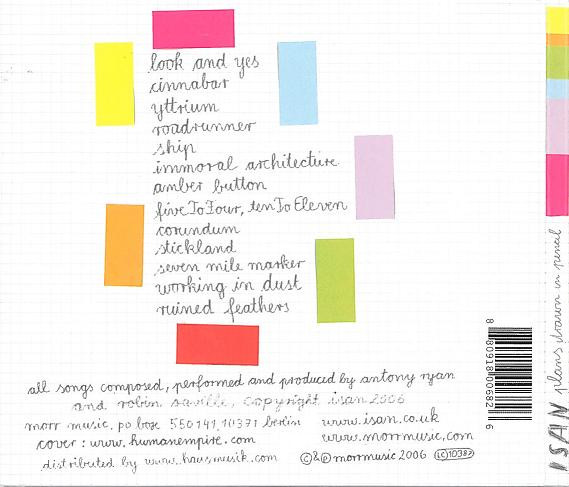 look and yes
cinnabar
yttrium
roadrunner
ship
immoral architecture
amber button
fiveToFour, tenToEleven
corundum
stickland
seven mile marker
working in dust
ruined feathers
all songs composed, performed and produced by antony ryan
and robin saville, copyright isan 2006
morr music, po box 550141, 10371 berlin www.isan.co.uk
cover: www.humanempire.com www.morrmusic.com
distributed by www.hausmusik.com ©&℗ morrmusic 2006 LC 10387
8 80918 00682 6
ISAN plans drawn in pencil